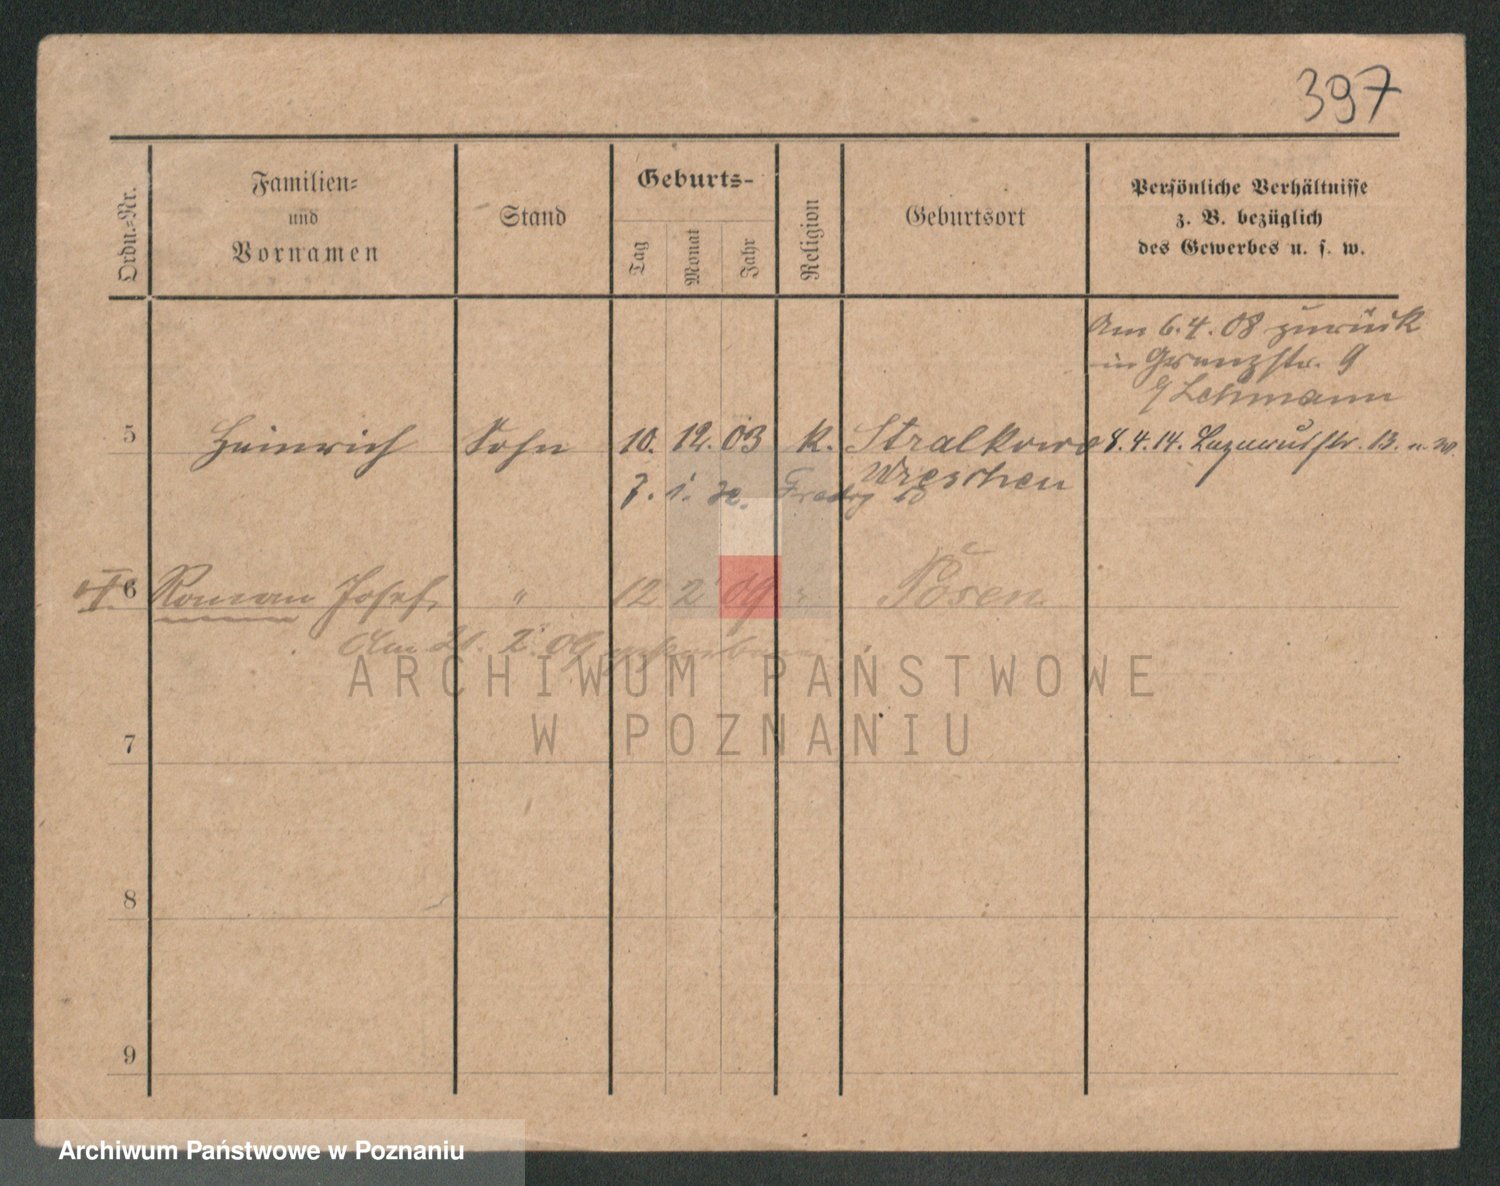 397
Ordn.-Nr.
Familien-
und
Vornamen
Stand
Geburts-
Tag
Monat
Jahr
Religion
Geburtsort
Persönliche Verhältnisse
z. B. bezüglich
des Gewerbes u. s. w.
Am 6. 4. 08 zurück
in Grenzstr. 9
b/ Lehmann
5 Heinrich Sohn 10. 12. 03 K. Stralkowo 8. 4. 14. Lazarusstr. 13. n. W.
Wreschen
7. 1. 20.
6 Roman Josef " 12 2 09 " Posen
Am 21. 2. 09 gestorben
ARCHIWUM PAŃSTWOWE
W POZNANIU
7
8
9
Archiwum Państwowe w Poznaniu